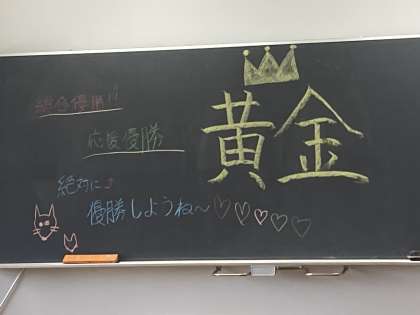 総合優勝!!
応援優勝
黄金
絶対に♪
優勝しようね〜♡♡♡♡♡